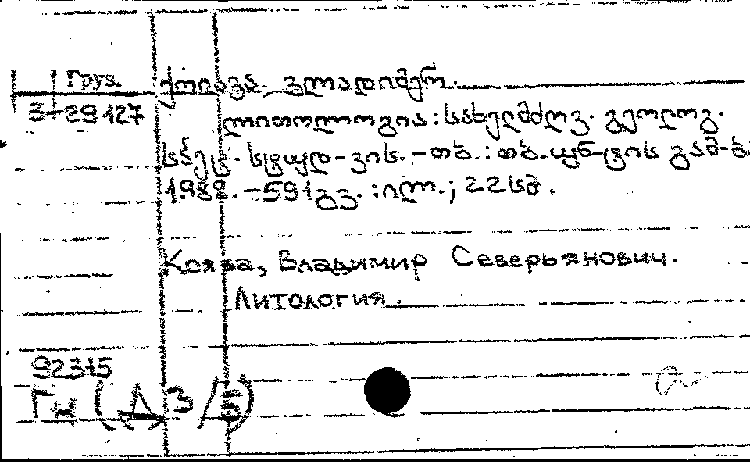 Груз.
ქოიავა, ვლადიმერ.
3-29127
ლითოლოგია: სახელმძღვ. გეოლოგ.
სპეც. სტუდ-ვის. - თბ.: თბ. უნ-ტის გამ-ბა
1989. - 591 გვ.: ილ.; 22 სმ.
Коява, Владимир Северьянович.
Литология.
92315
Гн (Д) 3/5)